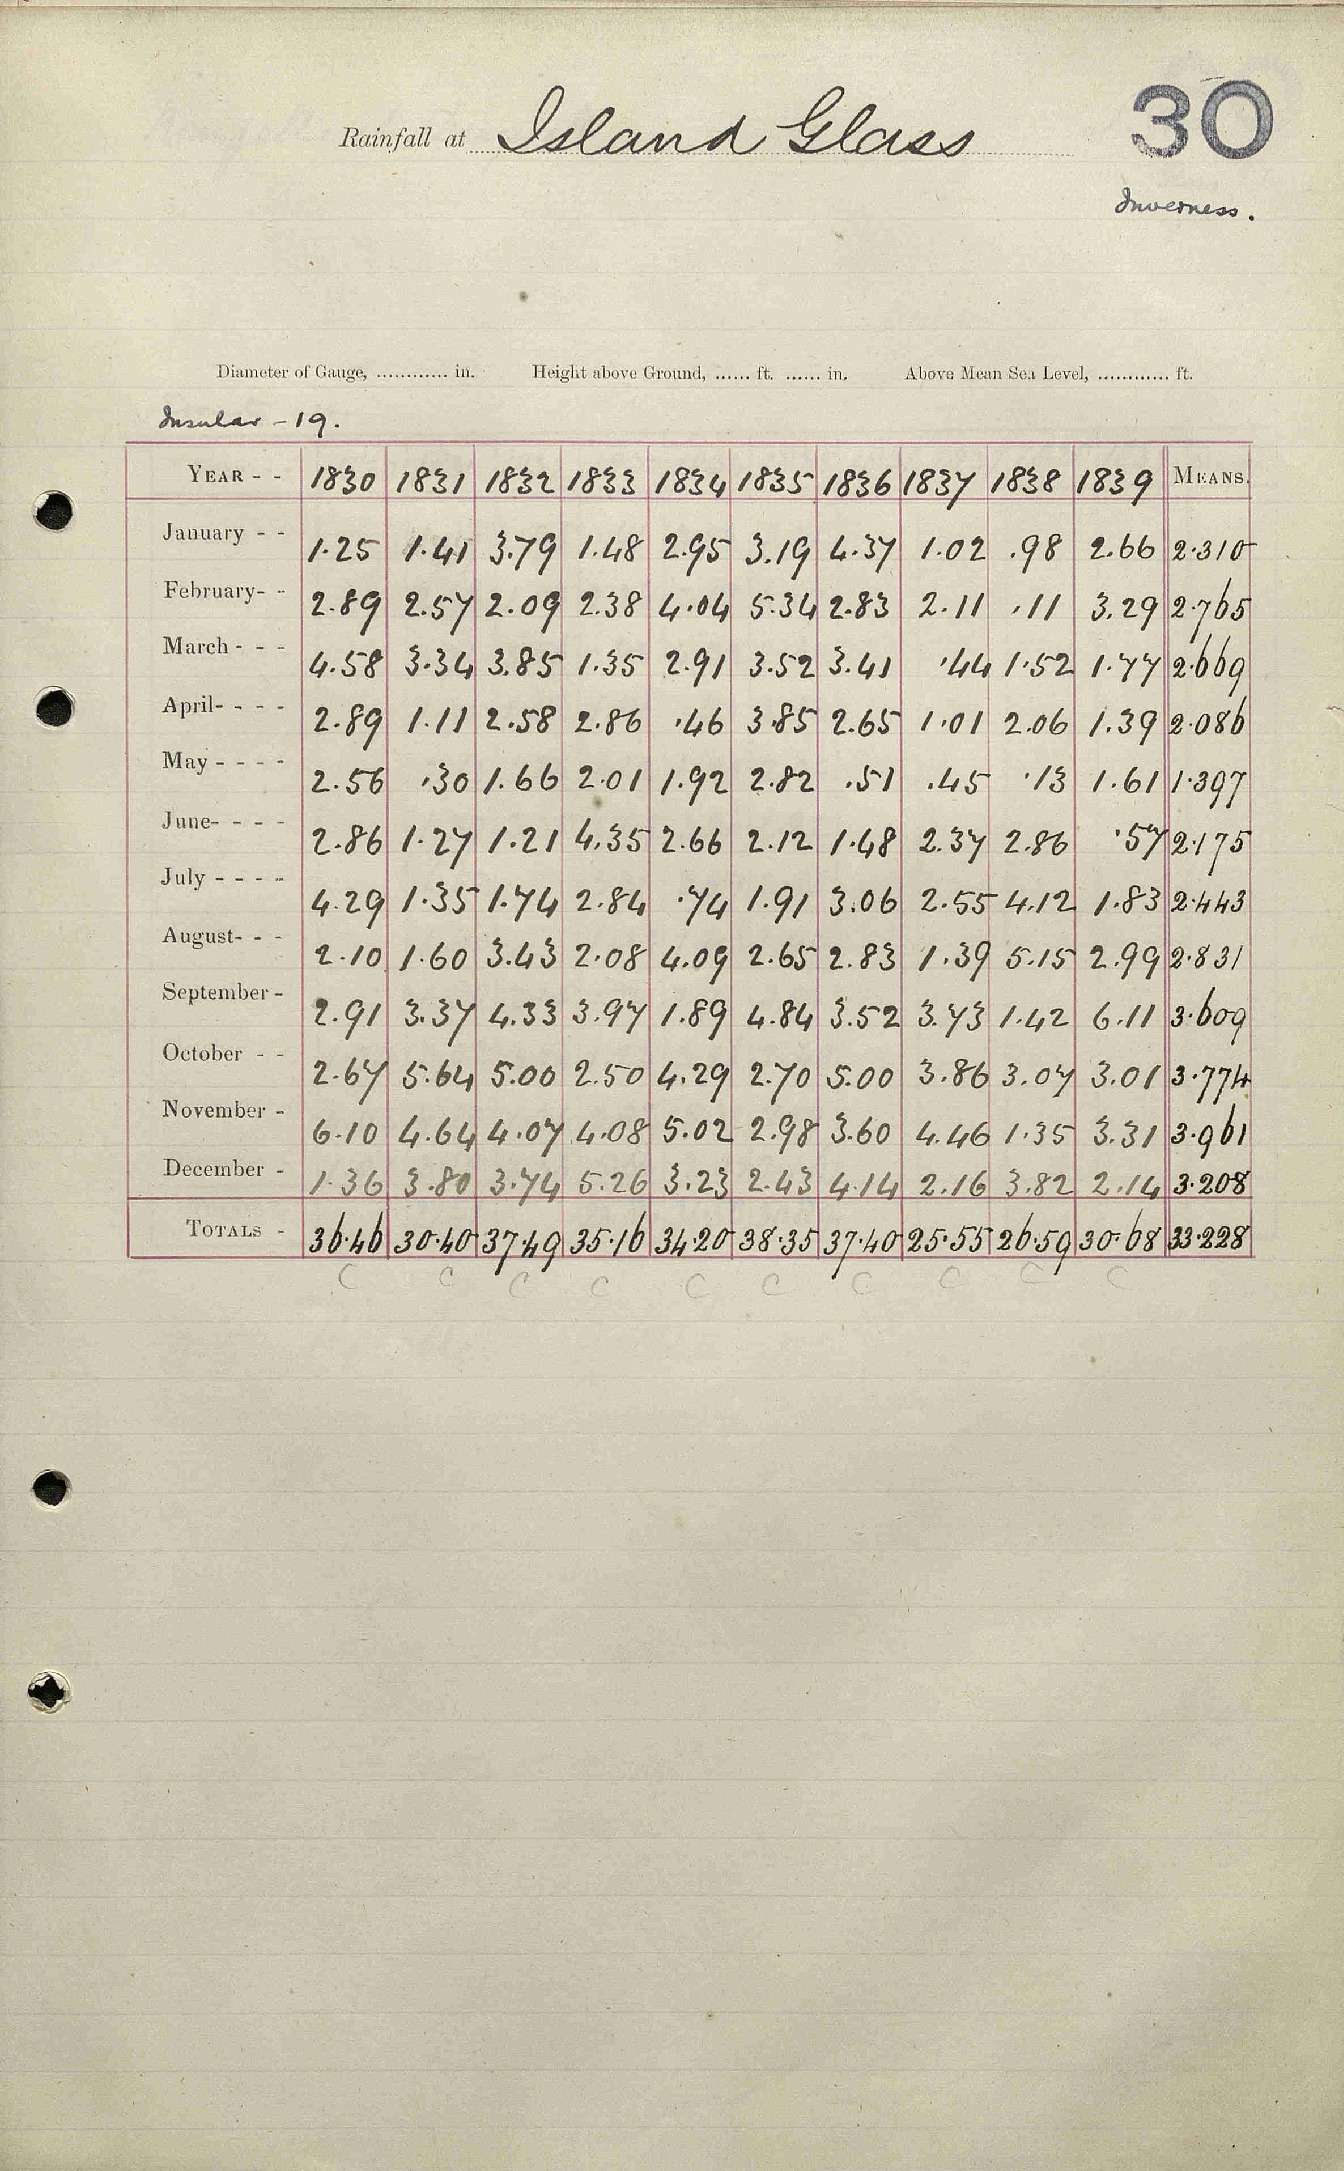 Rainfall at Island Glass 30
Inverness.
Diameter of Gauge, ............ in. Height above Ground, ...... ft. ...... in. Above Mean Sea Level, ............ ft.
Insular - 19.
YEAR - - 1830 1831 1832 1833 1834 1835 1836 1837 1838 1839 MEANS.
January - - 1.25 1.41 3.79 1.48 2.95 3.19 4.37 1.02 .98 2.66 2.310
February- - 2.89 2.57 2.09 2.38 4.04 5.34 2.83 2.11 .11 3.29 2.765
March - - - 4.58 3.34 3.85 1.35 2.91 3.52 3.41 .44 1.52 1.77 2.669
April- - - - 2.89 1.11 2.58 2.86 .46 3.85 2.65 1.01 2.06 1.39 2.086
May - - - - 2.56 .30 1.66 2.01 1.92 2.82 .51 .45 .13 1.61 1.397
June- - - - 2.86 1.27 1.21 4.35 2.66 2.12 1.48 2.37 2.86 .57 2.175
July - - - - 4.29 1.35 1.74 2.84 .74 1.91 3.06 2.55 4.12 1.83 2.443
August- - - 2.10 1.60 3.43 2.08 4.09 2.65 2.83 1.39 5.15 2.99 2.831
September - 2.91 3.37 4.33 3.97 1.89 4.84 3.52 3.73 1.42 6.11 3.609
October - - 2.67 5.64 5.00 2.50 4.29 2.70 5.00 3.86 3.07 3.01 3.774
November - 6.10 4.64 4.07 4.08 5.02 2.98 3.60 4.46 1.35 3.31 3.961
December - 1.36 3.80 3.74 5.26 3.23 2.43 4.14 2.16 3.82 2.14 3.208
TOTALS - 36.46 30.40 37.49 35.16 34.20 38.35 37.40 25.55 26.59 30.68 33.228
C C C C C C C C C C